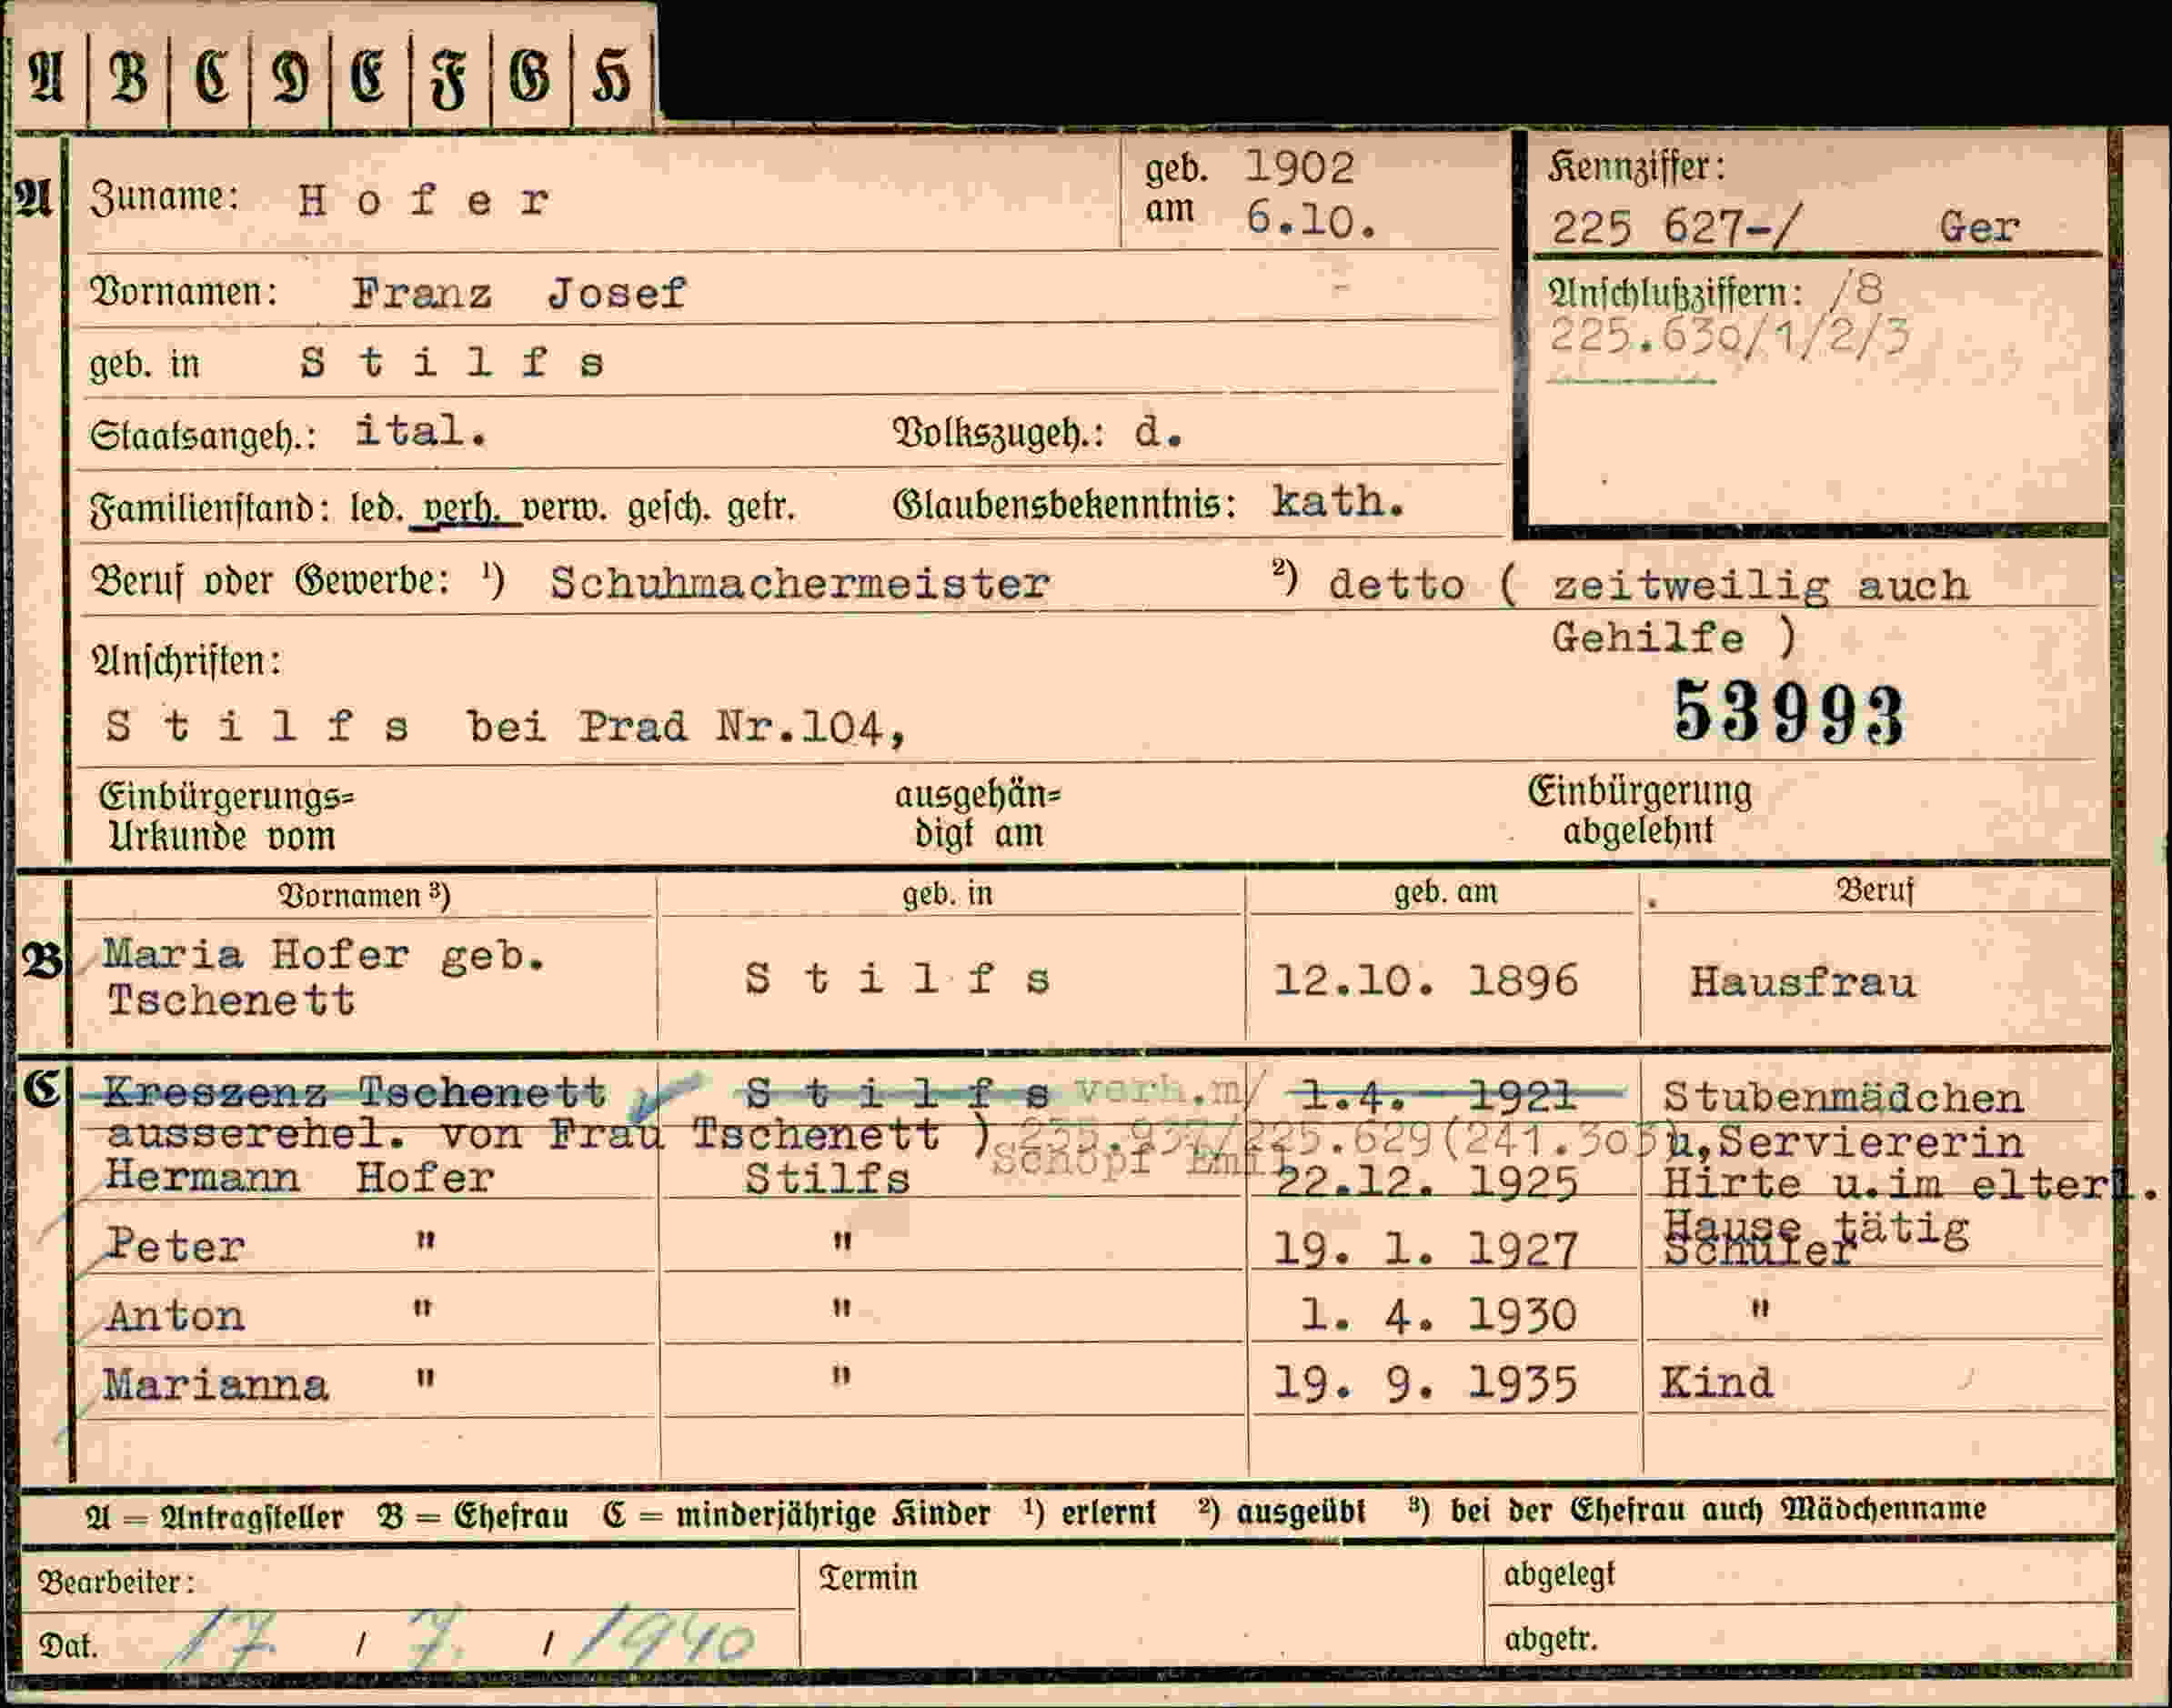 A B C D E F G H
A Zuname: H o f e r geb. am 1902 6.10.
Kennziffer: 225 627-/ Ger
Vornamen: Franz Josef
Anschlußziffern: /8
225.630/1/2/3
geb. in S t i l f s
Staatsangeh.: ital. Volkszugeh.: d.
Familienstand: led. verh. verw. gesch. getr. Glaubensbekenntnis: kath.
Beruf oder Gewerbe: ¹) Schuhmachermeister ²) detto ( zeitweilig auch
Gehilfe )
Anschriften:
53993
S t i l f s bei Prad Nr.104,
Einbürgerungs= ausgehän= Einbürgerung
Urkunde vom digt am abgelehnt
Vornamen ³) geb. in geb. am Beruf
B Maria Hofer geb.
Tschenett S t i l f s 12.10. 1896 Hausfrau
C Kreszenz Tschenett S t i l f s verh.m/ 1.4. 1921 Stubenmädchen
ausserehel. von Frau Tschenett ) 235.937/225.629(241.303 u,Serviererin
Schöpf Emil
Hermann Hofer Stilfs 22.12. 1925 Hirte u.im elterl.
Hause tätig
Peter " " 19. 1. 1927 Schüler
Anton " " 1. 4. 1930 "
Marianna " " 19. 9. 1935 Kind
A = Antragsteller B = Ehefrau C = minderjährige Kinder ¹) erlernt ²) ausgeübt ³) bei der Ehefrau auch Mädchenname
Bearbeiter: Termin abgelegt
Dat. 17. / 7. / 1940 abgetr.